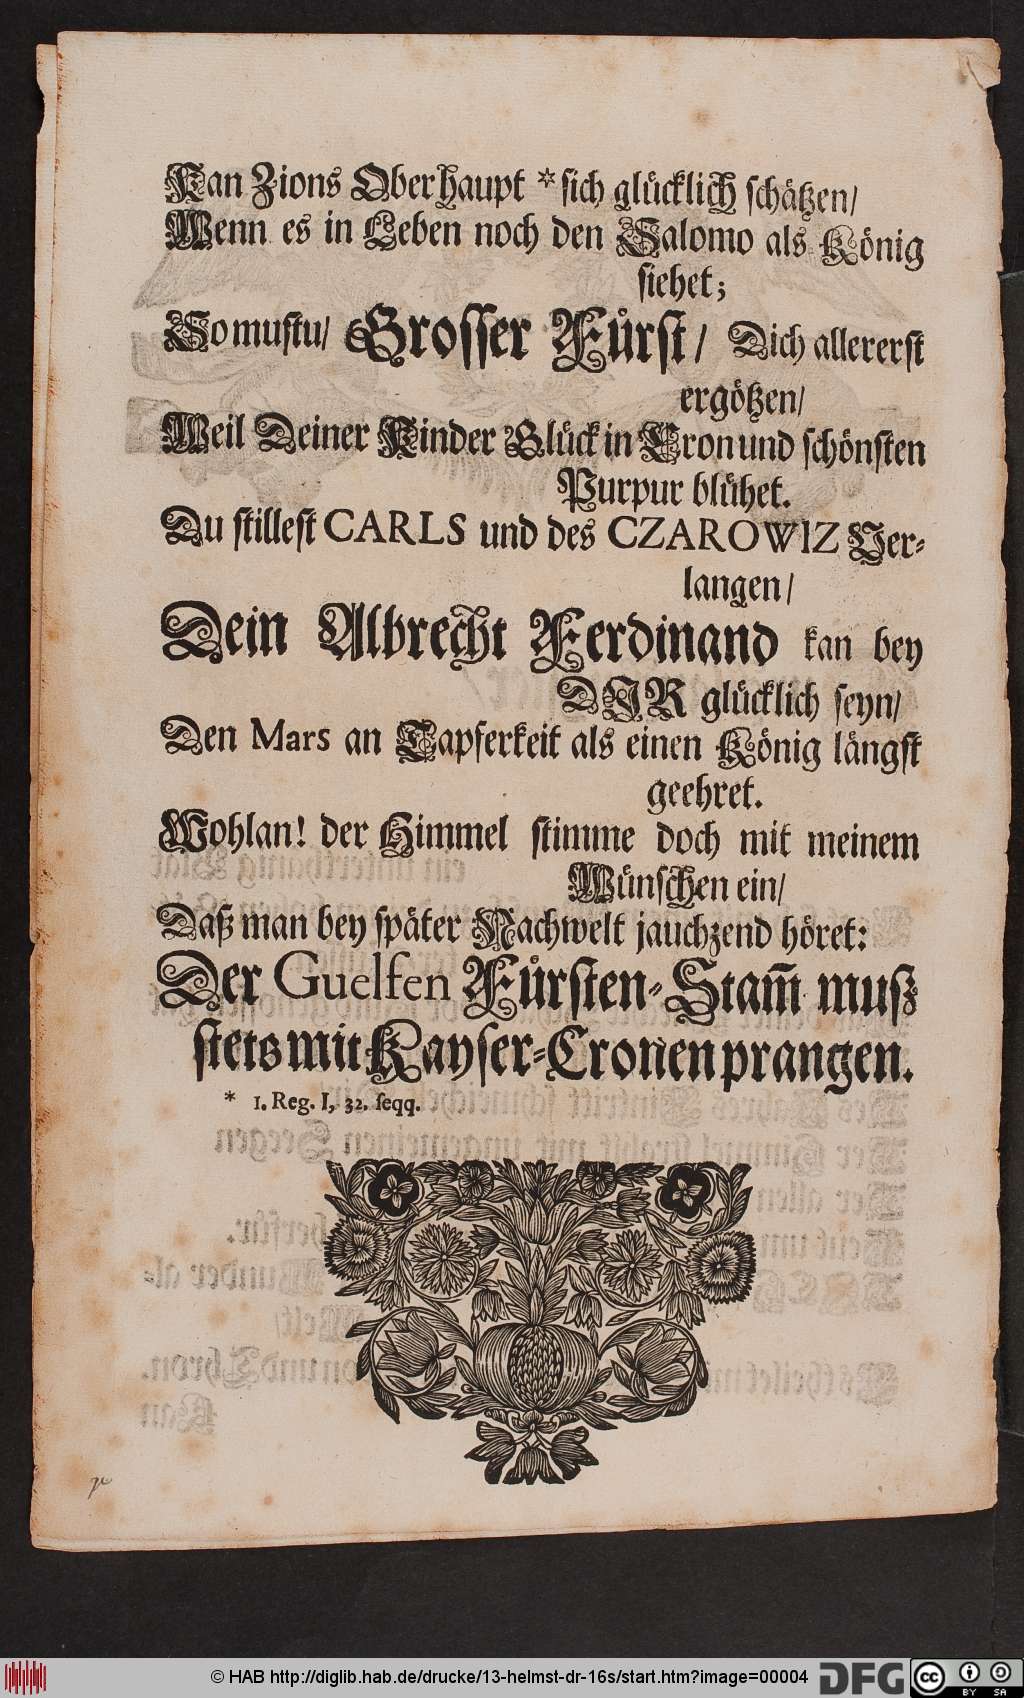 Kan Zions Oberhaupt * sich glücklich schätzen/
Wenn es in Leben noch den Salomo als König
siehet;
So mustu/ Grosser Fürst/ Dich allererst
ergötzen/
Weil Deiner Kinder Glück in Cron und schönsten
Purpur blühet.
Du stillest CARLS und des CZAROWIZ Ver-
langen/
Dein Albrecht Ferdinand kan bey
DJR glücklich seyn/
Den Mars an Tapferkeit als einen König längst
geehret.
Wohlan! der Himmel stimme doch mit meinem
Wünschen ein/
Daß man bey später Nachwelt jauchzend höret:
Der Guelfen Fürsten-Stam̅ muß
stets mit Kayser-Cronen prangen.
* 1. Reg. I, 32. seqq.
© HAB http://diglib.hab.de/drucke/13-helmst-dr-16s/start.htm?image=00004
DFG
CC
BY SA